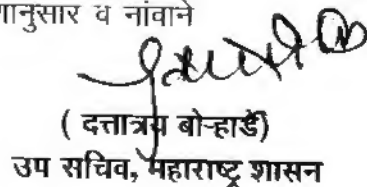 णानुसार व नांवाने
( दत्तात्रय बोऱ्हाडे)
उप सचिव, महाराष्ट्र शासन